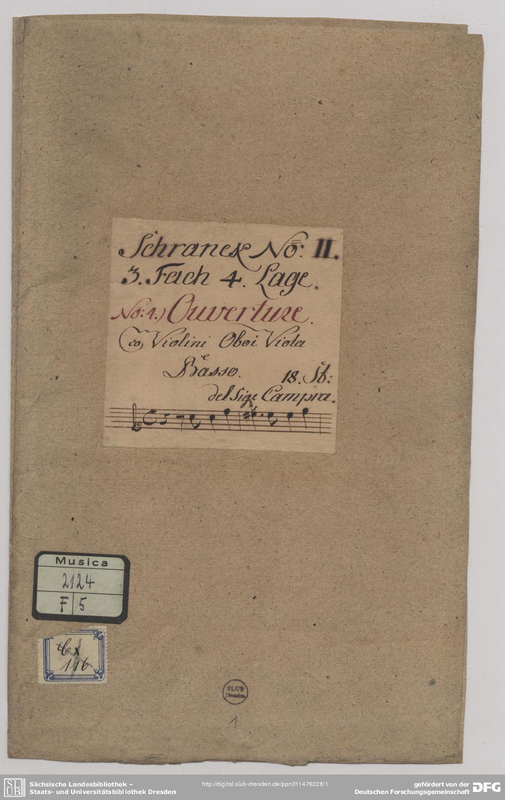 Schranck No: II.
3. Fach 4. Lage.
No: 4.) Ouverture.
co Violini Oboi Viola
e
Basso. 18. St:
del Sigr Campra.
Musica
2124
F 5
Cx
116
SLUB
Dresden
1
SLUB
Sächsische Landesbibliothek –
Staats- und Universitätsbibliothek Dresden
http://digital.slub-dresden.de/ppn311476228/1
gefördert von der
Deutschen Forschungsgemeinschaft
DFG